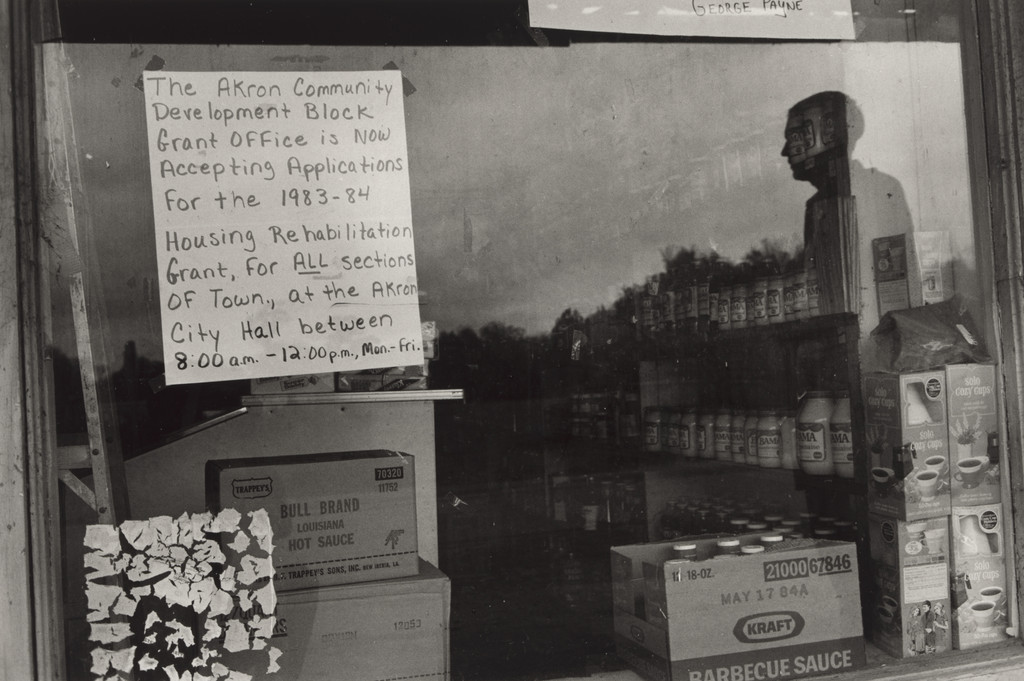 GEORGE PAYNE
The Akron Community
Development Block
Grant OFFice is Now
Accepting Applications
For the 1983-84
Housing Rehabilitation
Grant, For ALL sections
OF Town., at the Akron
City Hall between
8:00 a.m. - 12:00 p.m., Mon.-Fri.
TRAPPEY'S
70320
11752
BULL BRAND
LOUISIANA
HOT SAUCE
TRAPPEY'S SONS, INC. NEW IBERIA, LA.
12053
BAMA
solo
cozy cups
solo
cozy cups
solo
cozy cups
18-OZ.
21000 67846
MAY 17 84A
KRAFT
BARBECUE SAUCE